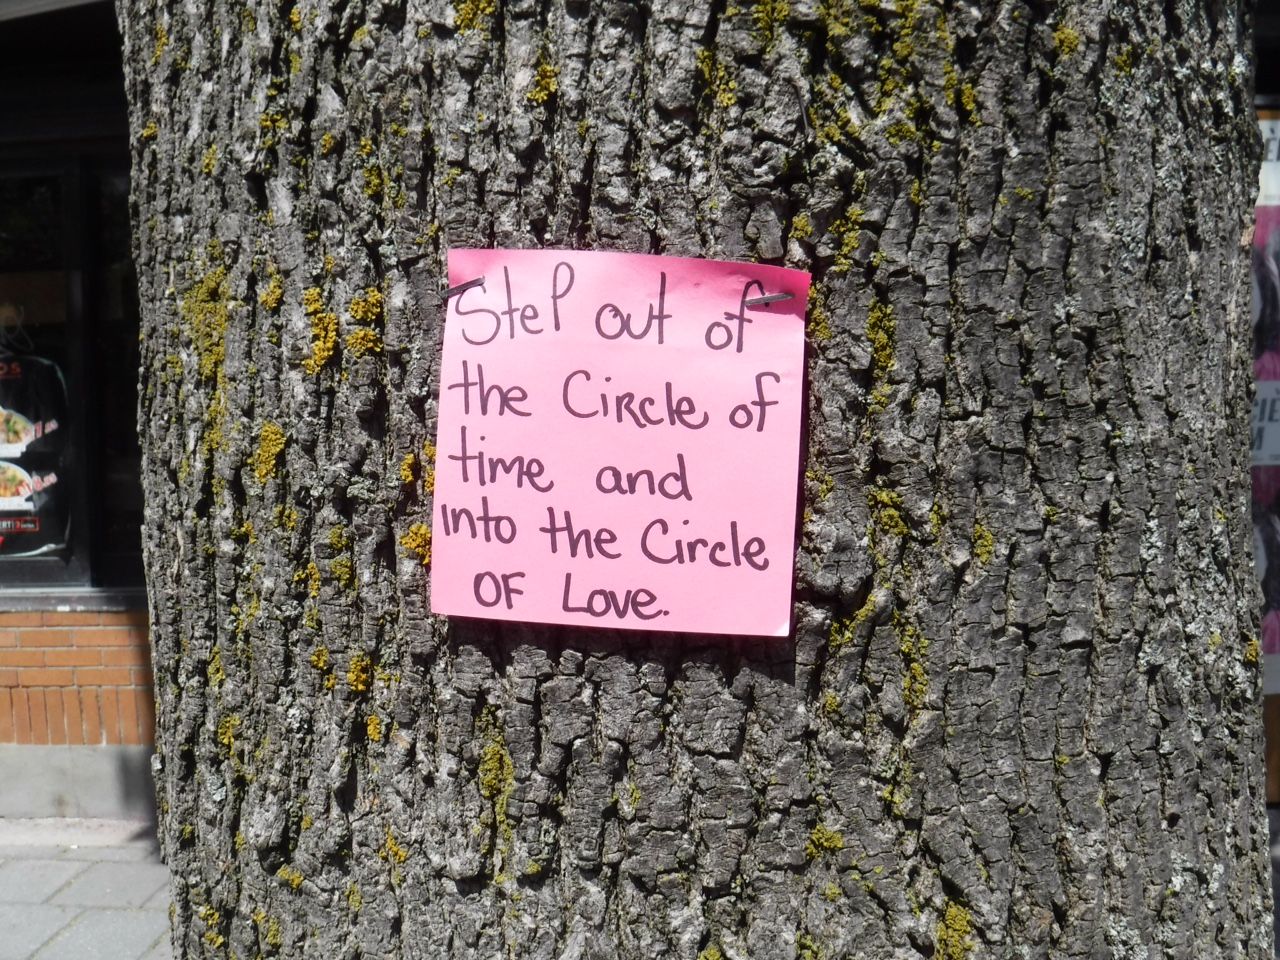 Step out of
the Circle of
time and
into the Circle
OF Love.